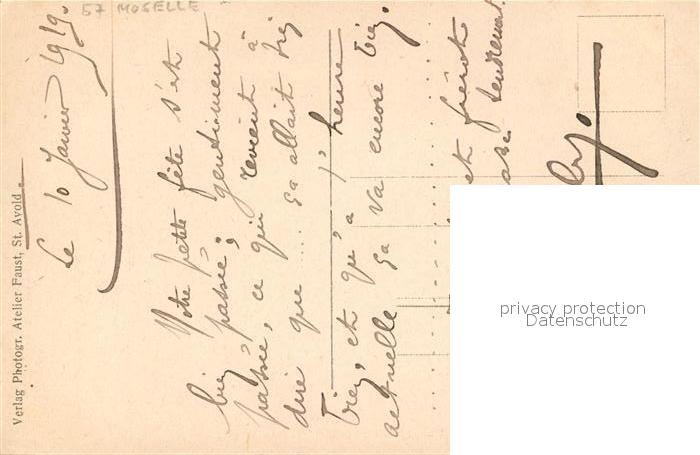 57 MOSELLE
Le 10 Janvier 1919.
Notre petite fête s'est
bien passée; gentiment
passée, ce qui revient à
dire que .... ça allait très
bien, et qu'à l'heure
actuelle ça va encore bien.
et
tendrement
Verlag Photogr. Atelier Faust, St. Avold.
privacy protection
Datenschutz